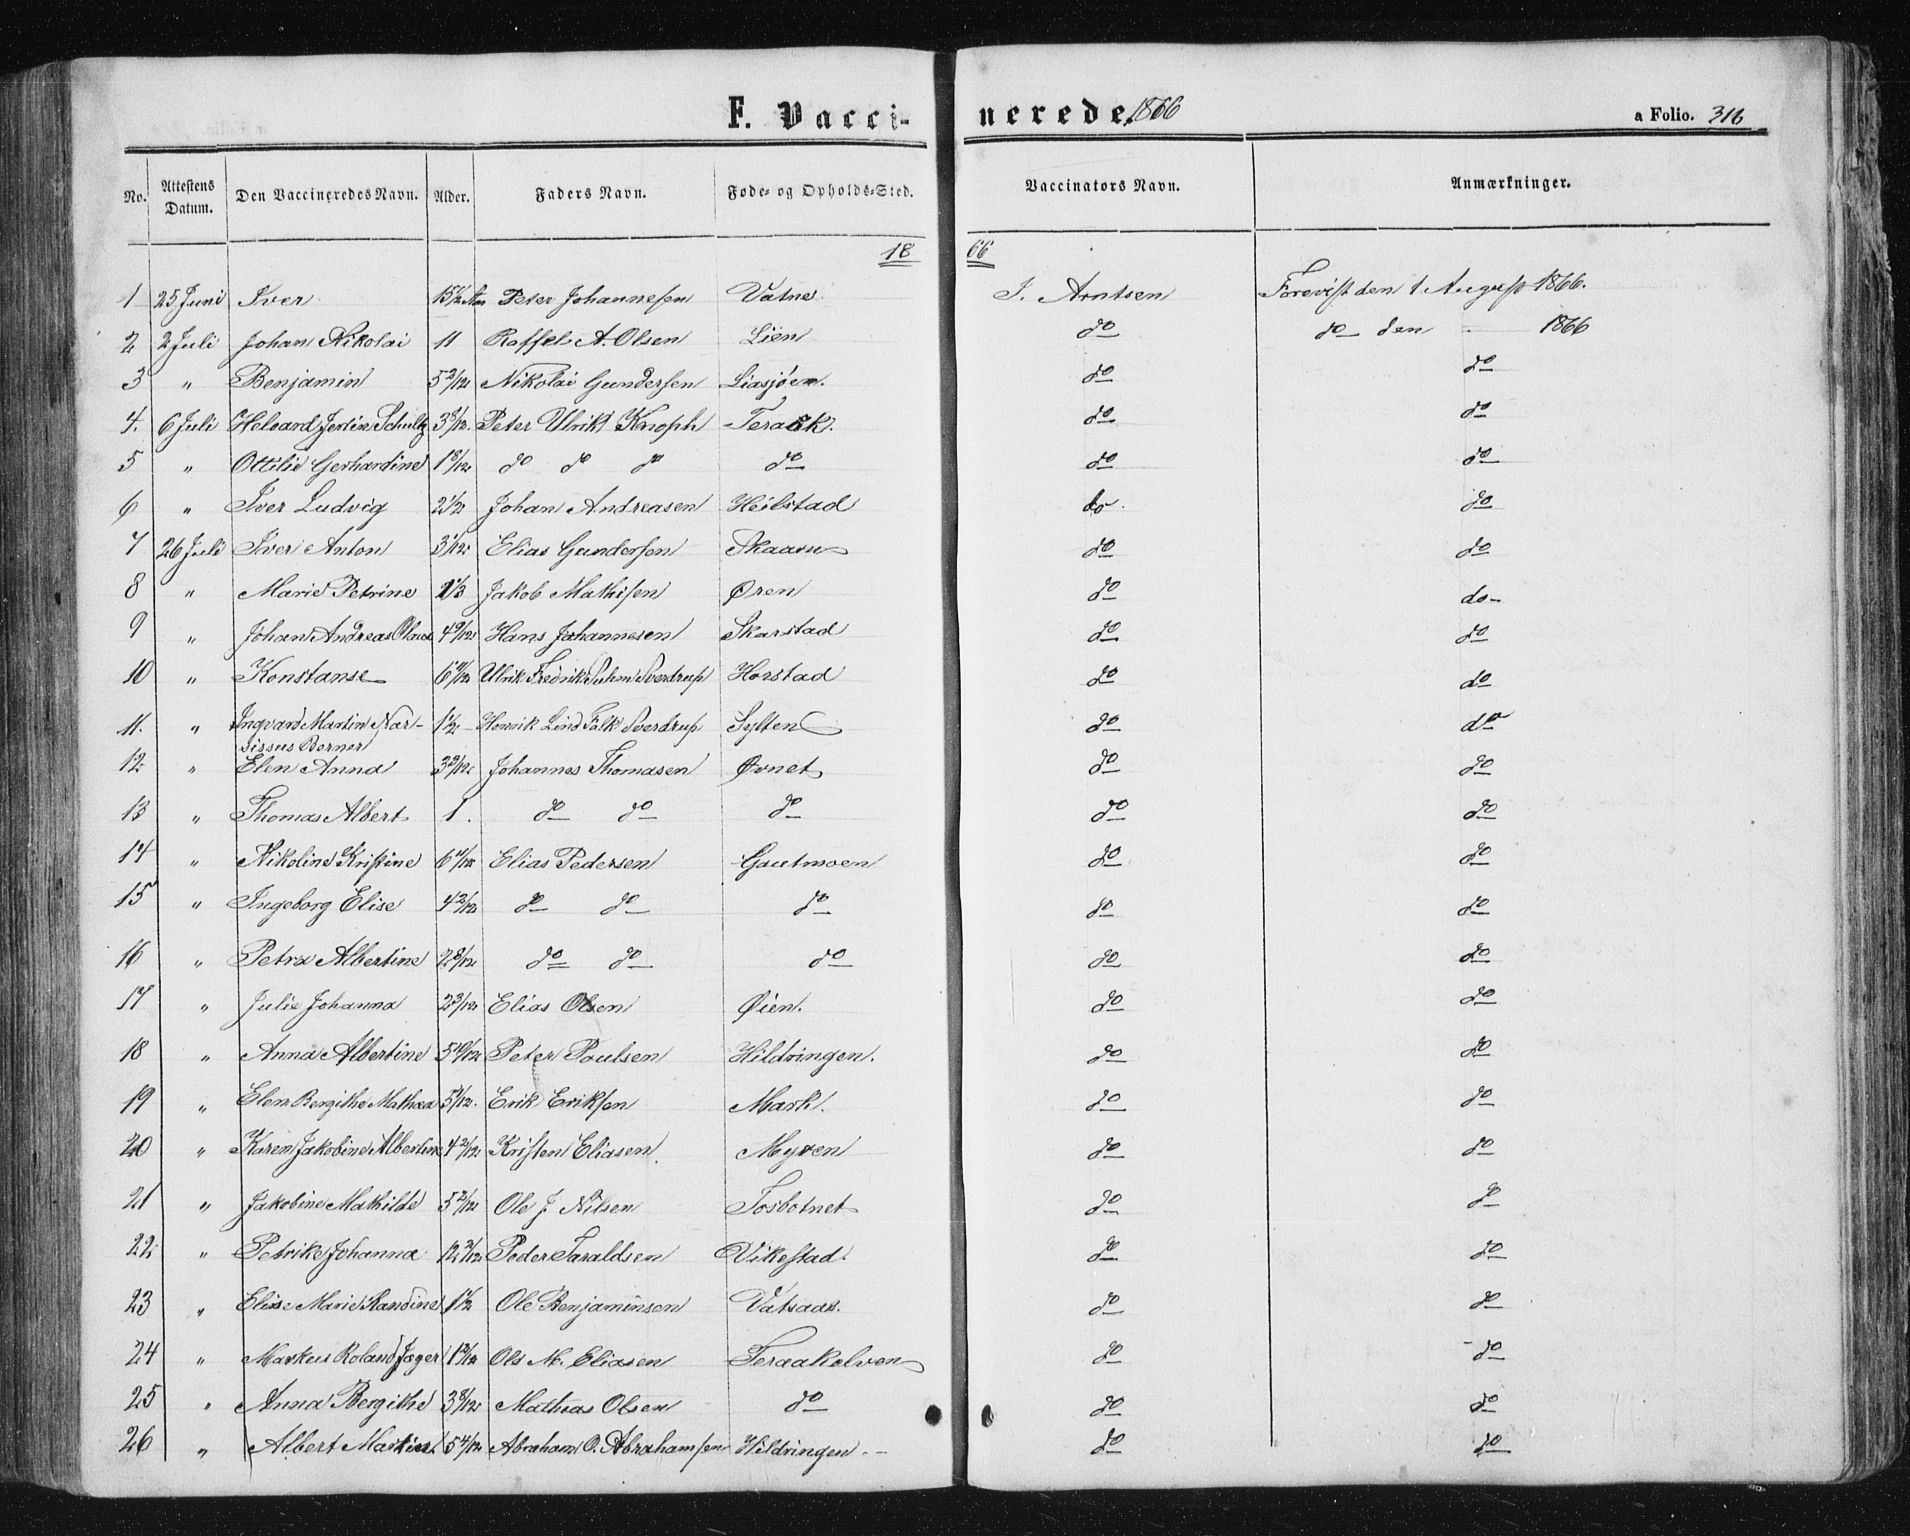 F. Vacci-nerede. 1866 a Folio. 316
No. Attestens Datum. Den Vaccineredes Navn. Alder. Faders Navn. Føde- og Opholds-Sted. Vaccinators Navn. Anmærkninger.
18 66
1 25 Juni Iver 15 1/2 Aar Peter Johannesen Vatne J. Arntsen Forevist den 1 August 1866.
2 2 Juli Johan Nikolai 11 Raffel A. Olsen Lien do do den - 1866
3 " Benjamin 5 2/12 Nikolai Gundersen Liasjøen. do do
4. 6 Juli Helvard Jertin Schultz 3 8/12. Peter Ulrik Knoph Teraak. do do
5 " Ottilie Gerhardine 1 8/12 do do do do do do
6 " Iver Ludvig 2 1/2 Johan Andreasen Heilstad do. do
7 26 Juli Iver Anton 3 1/12 Elias Gundersen Skaaru do do
8 " Marie Petrine 2 1/3 Jakob Mathisen Øren do do-
9 " Johan Andreas Olaus 4 9/12 Hans Johannesen Skarstad do do
10 " Konstanse 6 11/12 Ulrik Fredrik Suhm Sverdrup Horstad do do
11. " Ingvard Martin Nar- 1 1/2 Henrik Lind Falk Sverdrup Sylten do do
sissus Berner
12 " Elen Anna 3 9/12 Johannes Thomasen Øvnet do do
13 " Thomas Albert 1. do do do do do
14 " Nikoline Kristine 6 11/12 Elias Pedersen Gautmoen do do
15 " Ingeborg Elise 4 2/12 do do do do do
16 " Petra Albertine 2 8/12 do do do do do
17 " Julie Johanna 2 3/12 Elias Olsen Øien. do do
18 " Anna Albertine 5 10/12 Peter Poulsen Hildringen. do do
19 " Elen Bergithe Mathea 5 4/12. Erik Eriksen Mark. do do
20 " Karen Jakobine Albertine 4 2/12 Kristen Eliasen Myren do do
21 " Jakobine Mathilde 5 2/12 Ole J. Nilsen Tosbotnet do do
22 " Petrike Johanna 12 3/12 Peder Taraldsen Vikestad. do do
23 " Elise Marie Randine 1 1/2 Ole Benjaminsen Vatsaas. do do
24 " Markus Roland Jæger 1 2/12 Ole M. Eliasen Teraakelven do do
25 " Anna Bergithe 3 8/12 Mathias Olsen do do do
26 " Albert Martin 5 4/12 Abraham O. Abrahamsen Hildringen do do